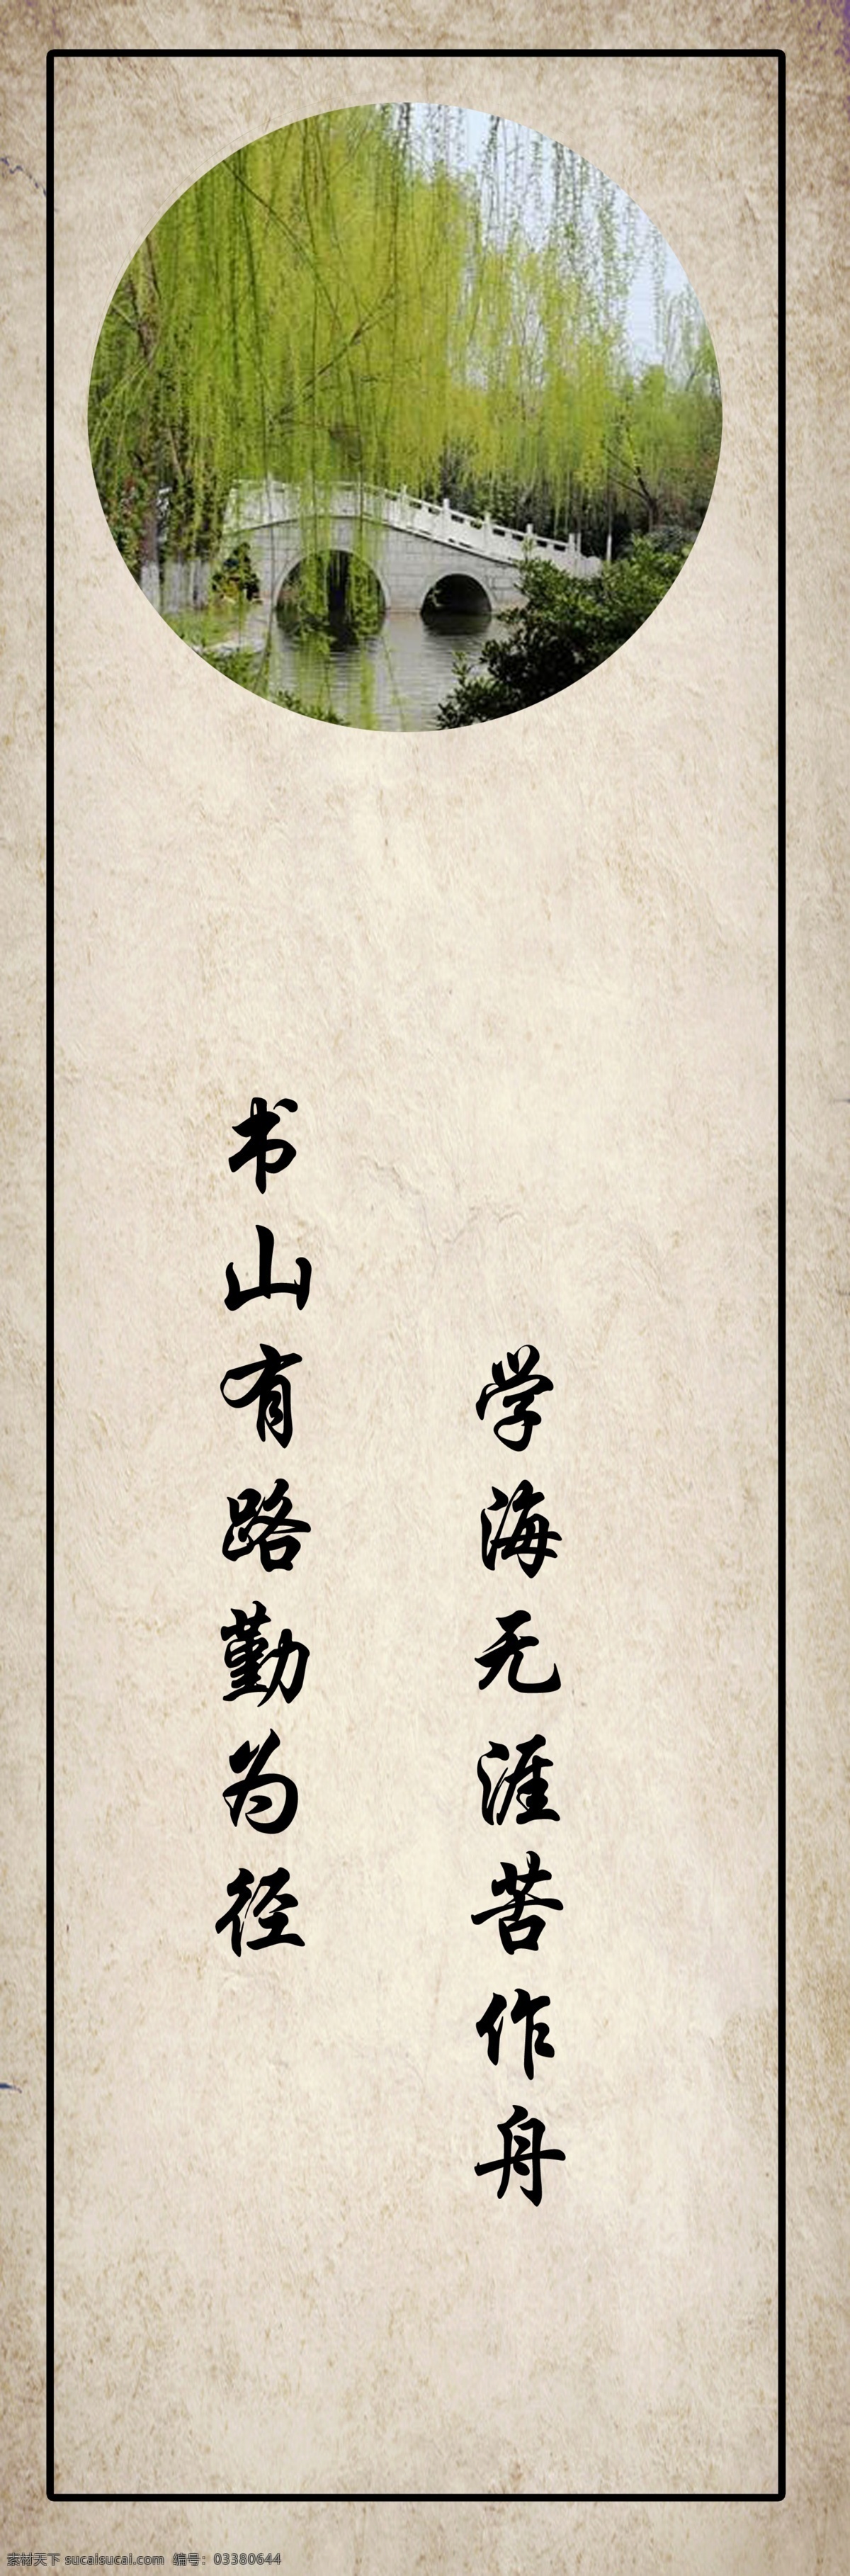 书山有路勤为径
学海无涯苦作舟
素材天下 sucaisucai.com 编号：03380644